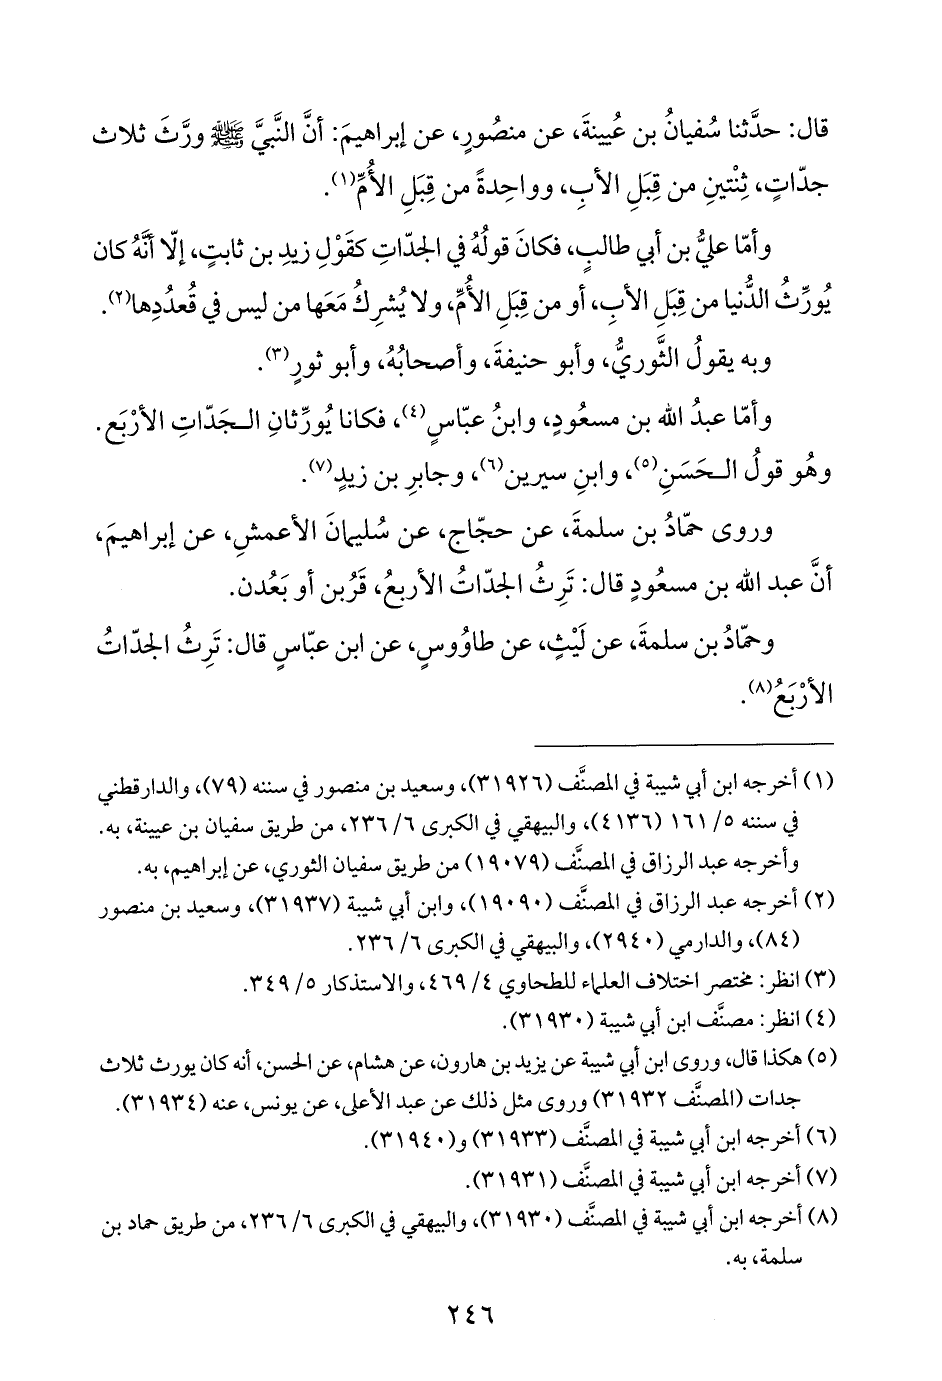 قال: حدَّثنا سُفيانُ بن عُيينةَ، عن منصُورٍ، عن إبراهيمَ: أنَّ النَّبيَّ ﷺ ورَّثَ ثلاث
جدّاتٍ، ثِنْتينِ من قِبَلِ الأبِ، وواحِدةً من قِبَلِ الأُمِّ(١).
وأمّا عليُّ بن أبي طالبٍ، فكانَ قولُهُ في الجدّاتِ كقَوْلِ زيدِ بن ثابتٍ، إلّا أنَّهُ كان
يُورِّثُ الدُّنيا من قِبَلِ الأبِ، أو من قِبَلِ الأُمِّ، ولا يُشرِكُ مَعَها من ليس في قُعدُدِها(٢).
وبه يقولُ الثَّوريُّ، وأبو حنيفةَ، وأصحابُهُ، وأبو ثورٍ(٣).
وأمّا عبدُ الله بن مسعُودٍ، وابنُ عبّاسٍ(٤)، فكانا يُورِّثانِ الـجَدّاتِ الأرْبَع.
وهُو قولُ الـحَسَنِ(٥)، وابنِ سيرين(٦)، وجابرِ بن زيدٍ(٧).
وروى حمّادُ بن سلمةَ، عن حجّاج، عن سُليمانَ الأعمشِ، عن إبراهيمَ،
أنَّ عبد الله بن مسعُودٍ قال: تَرِثُ الجدّاتُ الأربعُ، قَرُبن أو بَعُدن.
وحمّادُ بن سلمةَ، عن لَيْثٍ، عن طاوُوسٍ، عن ابن عبّاسٍ قال: تَرِثُ الجدّاتُ
الأرْبَعُ(٨).
(١) أخرجه ابن أبي شيبة في المصنَّف (٣١٩٢٦)، وسعيد بن منصور في سننه (٧٩)، والدارقطني
في سننه ٥/ ١٦١ (٤١٣٦)، والبيهقي في الكبرى ٦/ ٢٣٦، من طريق سفيان بن عيينة، به.
وأخرجه عبد الرزاق في المصنَّف (١٩٠٧٩) من طريق سفيان الثوري، عن إبراهيم، به.
(٢) أخرجه عبد الرزاق في المصنَّف (١٩٠٩٠)، وابن أبي شيبة (٣١٩٣٧)، وسعيد بن منصور
(٨٤)، والدارمي (٢٩٤٠)، والبيهقي في الكبرى ٦/ ٢٣٦.
(٣) انظر: مختصر اختلاف العلماء للطحاوي ٤/ ٤٦٩، والاستذكار ٥/ ٣٤٩.
(٤) انظر: مصنَّف ابن أبي شيبة (٣١٩٣٠).
(٥) هكذا قال، وروى ابن أبي شيبة عن يزيد بن هارون، عن هشام، عن الحسن، أنه كان يورث ثلاث
جدات (المصنَّف ٣١٩٣٢) وروى مثل ذلك عن عبد الأعلى، عن يونس، عنه (٣١٩٣٤).
(٦) أخرجه ابن أبي شيبة في المصنَّف (٣١٩٣٣) و(٣١٩٤٠).
(٧) أخرجه ابن أبي شيبة في المصنَّف (٣١٩٣١).
(٨) أخرجه ابن أبي شيبة في المصنَّف (٣١٩٣٠)، والبيهقي في الكبرى ٦/ ٢٣٦، من طريق حماد بن
سلمة، به.
٢٤٦